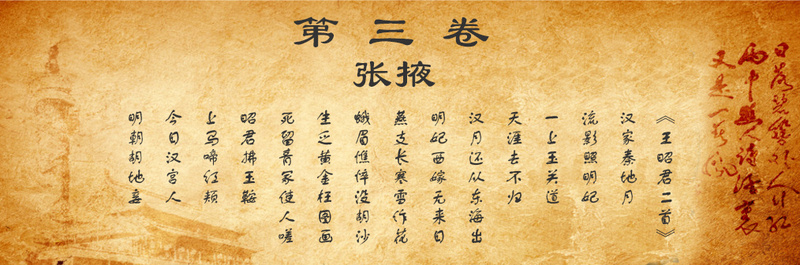 第三卷
张掖
《王昭君二首》
汉家秦地月
流影照明妃
一上玉关道
天涯去不归
汉月还从东海出
明妃西嫁无来日
燕支长寒雪作花
蛾眉憔悴没胡沙
生乏黄金枉图画
死留青冢使人嗟
昭君拂玉鞍
上马啼红颊
今日汉宫人
明朝胡地妾